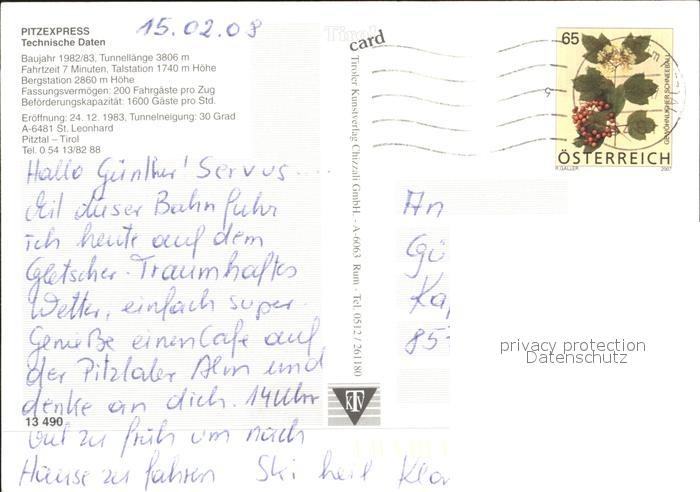 15.02.08
PITZEXPRESS
Technische Daten
Baujahr 1982/83, Tunnellänge 3806 m
Fahrtzeit 7 Minuten, Talstation 1740 m Höhe
Bergstation 2860 m Höhe
Fassungsvermögen: 200 Fahrgäste pro Zug
Beförderungskapazität: 1600 Gäste pro Std.
Eröffnung: 24. 12. 1983, Tunnelneigung: 30 Grad
A-6481 St. Leonhard
Pitztal – Tirol
Tel. 0 54 13/82 88
Hallo Günther! Servus....
Mit dieser Bahn fuhr
ich heute auf dem
Gletscher. Traumhaftes
Wetter, einfach super.
Genieße einen Cafe auf
der Pitztaler Alm und
denke an dich. 14 Uhr
13 490
zu früh um nach
Hause zu fahren Ski heil
Tirol
card
Tiroler Kunstverlag Chizzali GmbH. - A-6063 Rum - Tel. 0512 / 261180
KTV
65
GEWÖHNLICHER SCHNEEBALL
ÖSTERREICH
R.GALLER 2007
An
Gü
Ka
85
privacy protection
Datenschutz